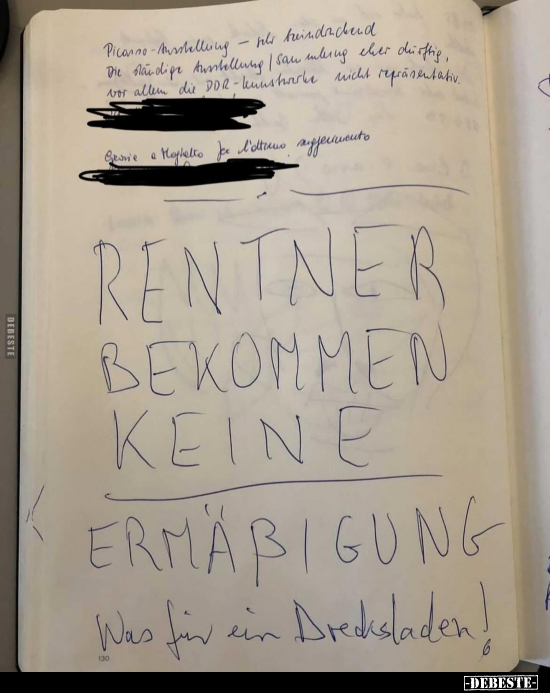 Picasso-Ausstellung – sehr beeindruckend
Die ständige Ausstellung / Sammlung eher dürftig,
vor allem die DDR-Kunstwerke nicht repräsentativ.
Grazie a per l'ottimo suggerimento
RENTNER
BEKOMMEN
KEINE
ERMÄßIGUNG
Was für ein Drecksladen!
130
DEBESTE
-DEBESTE-